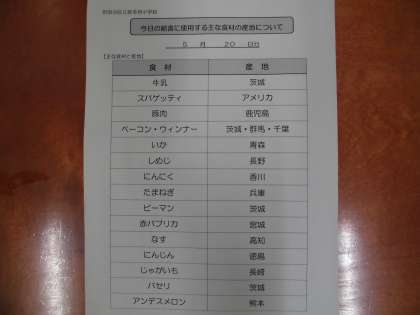 今日の給食に使用する主な食材の産地について
5 月 20 日分
【主な食材と産地】
食 材 産 地
牛乳 茨城
スパゲッティ アメリカ
豚肉 鹿児島
ベーコン・ウィンナー 茨城・群馬・千葉
いか 青森
しめじ 長野
にんにく 香川
たまねぎ 兵庫
ピーマン 茨城
赤パプリカ 宮城
なす 高知
にんじん 徳島
じゃがいも 長崎
パセリ 茨城
アンデスメロン 熊本